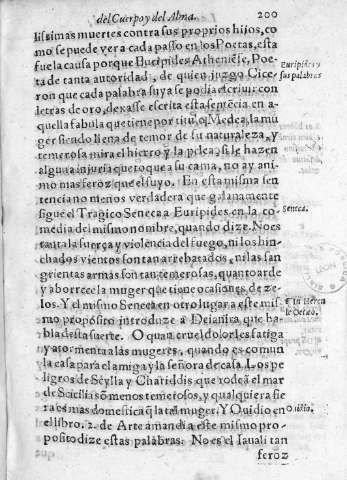 del Cuerpo y del Alma. 200
lissimas muertes contra sus proprios hijos, co
mo se puede ver a cada passo en los Poetas, esta
fue la causa porque Euripides Atheniẽse, Poe
ta de tanta autoridad, de quien juzgo Cice
ron que cada palabra suya se podia escriuir con
letras de oro, dexasse escrita esta sentẽcia en a-
quella fabula que tiene por titu. q̃ Medea, la mu
ger siendo llena de temor de su naturaleza, y
temerosa mira el hierro y la pelea, si le hazen
alguna injuria que toque a su cama, no ay ani
mo mas feroz que el suyo. En esta misma sen
tencia no menos verdadera que galanamente
sigue el Tragico Seneca a Euripides en la co
media del mismo nombre, quando dize. No es
tanta la fuerça y violencia del fuego, ni los hin-
chados vientos son tan arrebatados, ni las san
grientas armas son tan temerosas, quanto arde
y aborrece la muger que tiene ocasiones de ze-
los. Y el mismo Seneca en otro lugar a este mis
mo proposito introduze a Deianira que ha-
bla desta suerte. O quan cruel dolor les fatiga
y atormenta a las mugeres, quando es comun
la casa para el amiga y la señora de casa. Los pe
ligros de Scylla y Charibdis que rodeã el mar
de Scicilia sõ menos temerosos, y qualquiera fie
ra es mas domestica q̃ la tal muger. Y Ouidio en
el libro. 2. de Arte amandi a este mismo pro-
posito dize estas palabras: No es el Iauali tan
feroz
Euripides y
sus palabras
Seneca.
Ouidio.